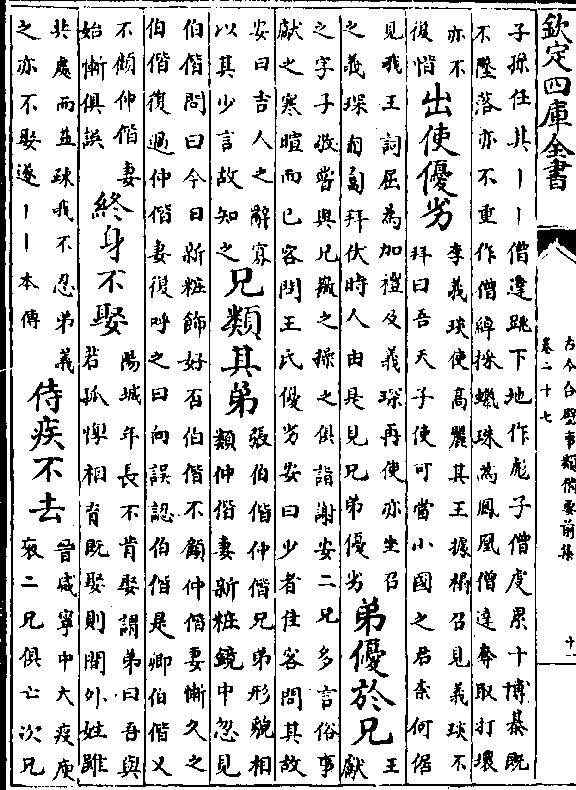 欽定四庫全書
古今合璧事類備要前集
卷二十七
十一
子孫任其丨丨僧達跳下地作彪子僧虔累十博棊既
不墜落亦不重作僧綽採蠟珠為鳳凰僧達奪取打壞
亦不
復惜
出使優劣
李義琰使高麗其王據榻召見義琰不
拜曰吾天子使可當小國之君柰何倨
見我王詞屈為加禮及義琛再使亦坐召
之義琛匍匐拜伏時人由是見兄弟優劣
弟優於兄
王
獻
之字子敬嘗與兄徽之操之俱詣謝安二兄多言俗事
獻之寒暄而已客問王氏優劣安曰少者佳客問其故
安曰吉人之辭寡
以其少言故知之
兄類其弟
張伯偕仲偕兄弟形貌相
類仲偕妻新粧鏡中忽見
伯偕問曰今日新粧飾好否伯偕不顧仲偕妻慚久之
伯偕復過仲偕妻復呼之曰向誤認伯偕是卿伯偕又
不顧仲偕妻
始慚俱誤
終身不娶
陽城年長不肯娶謂弟曰吾與
若孤惸相育既娶則間外姓雖
共處而益疎我不忍弟義
之亦不娶遂丨丨本傳
侍疾不去
晉咸寧中大疫庾
裒二兄俱亡次兄